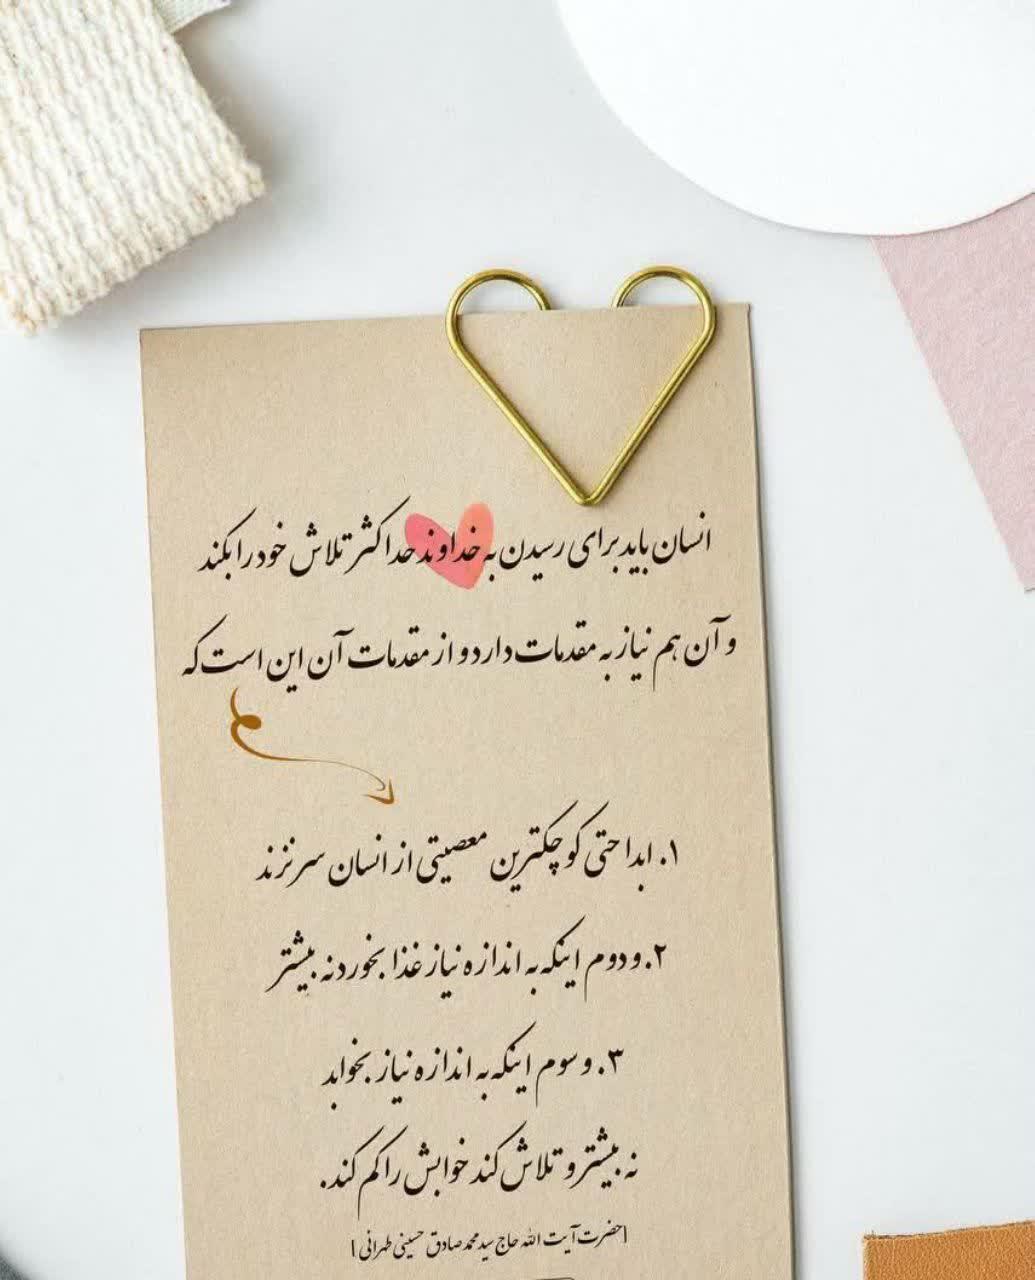 انسان باید برای رسیدن به خداوند حداکثر تلاش خود را بکند
و آن هم نیاز به مقدمات دارد و از مقدمات آن این است که
۱. ابدا حتی کوچکترین معصیتی از انسان سر نزند
۲. و دوم اینکه به اندازه نیاز غذا بخورد نه بیشتر
۳. و سوم اینکه به اندازه نیاز بخوابد
نه بیشتر و تلاش کند خوابش را کم کند.
|حضرت آیت الله حاج سید محمد صادق حسینی طهرانی|